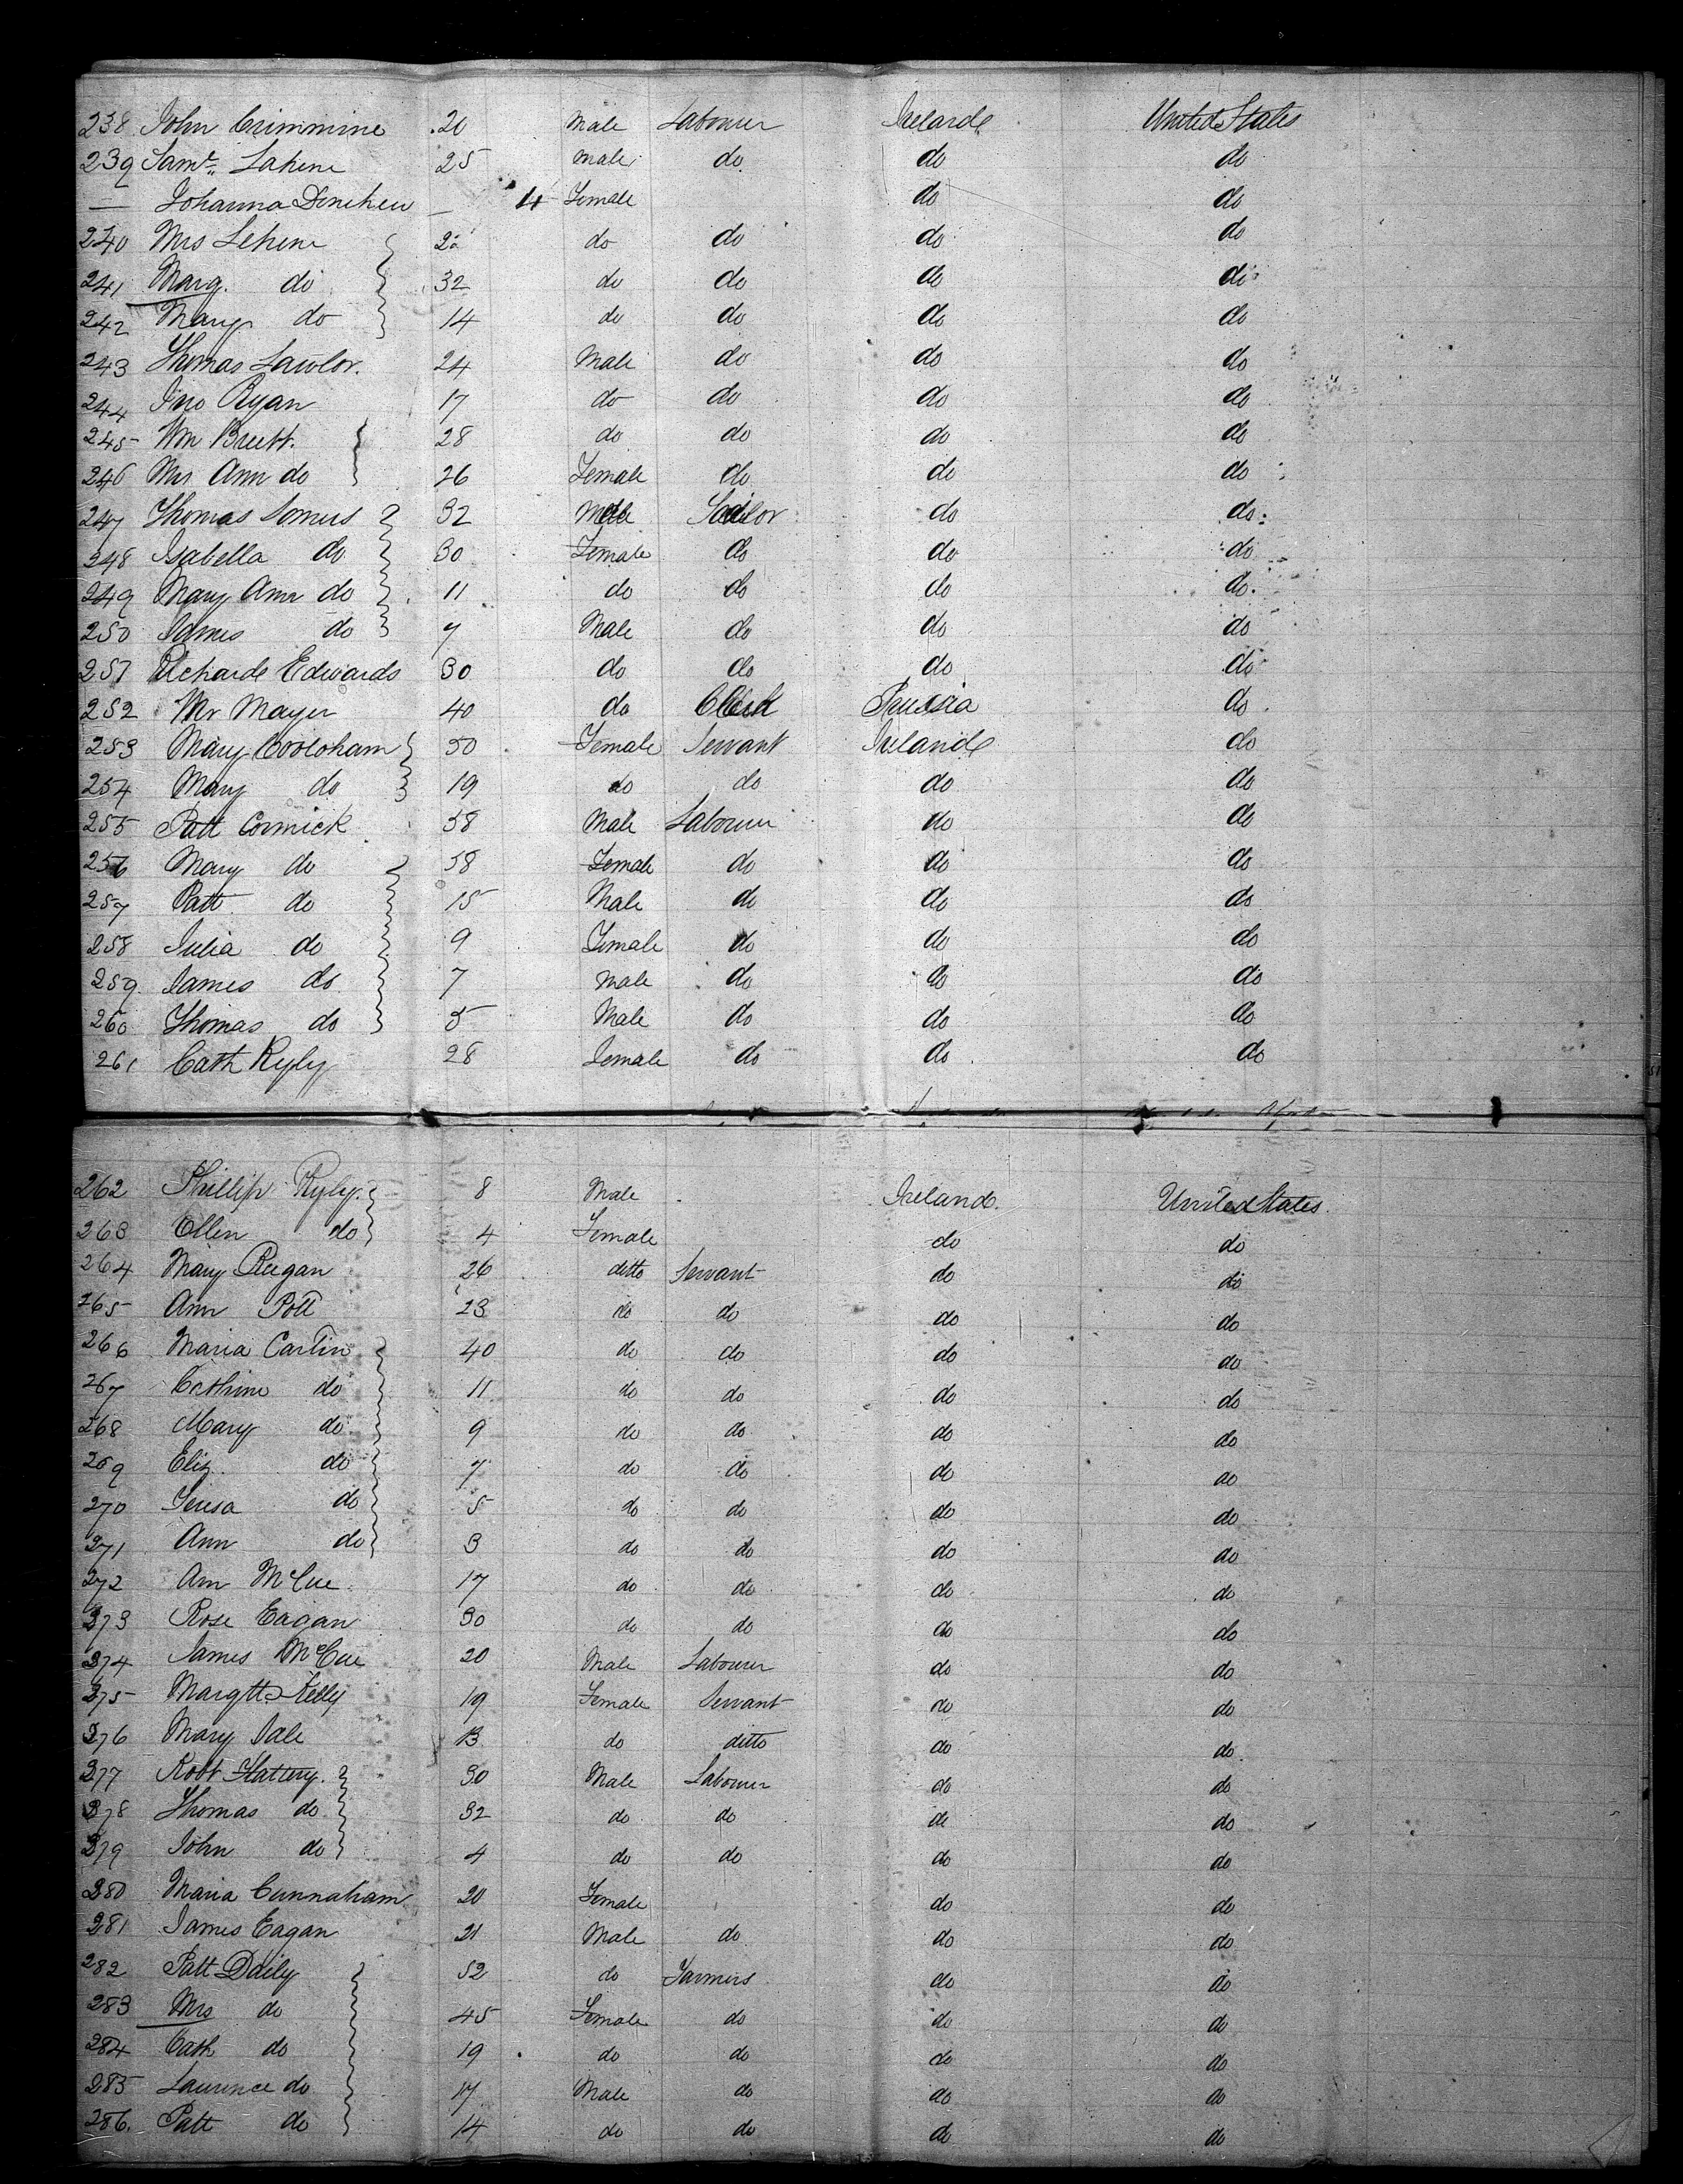 238 John Crimmine 20 Male Labourer Ireland United States
239 Saml. Lahene 25 Male do do do
— Johanna Denehen — 4 Female do do
240 Mrs Lehene do do do do
241 Marg. do 32 do do do do
242 Mary do 14 do do do do
243 Thomas Lawlor. 24 Male do do do
244 Jno Ryan 17 do do do do
245 Wm Brett. 28 do do do do
246 Mrs Ann do 26 Female do do do
247 Thomas Somers 32 Male Sailor do do
248 Isabella do 30 Female do do do
249 Mary Ann do 11 do do do do
250 James do 7 Male do do do
251 Richard Edwards 30 do do do do
252 Mr Mayer 40 do Clerk Prussia do
253 Mary Cooloham 50 Female Servant Ireland do
254 Mary do 19 do do do do
255 Patt Cormick 58 Male Labourer do do
256 Mary do 58 Female do do do
257 Patt do 15 Male do do do
258 Julia do 9 Female do do do
259 James do 7 Male do do do
260 Thomas do 5 Male do do do
261 Cath Ryly 28 Female do do do
262 Phillip Ryly. 8 Male Ireland. United States.
263 Ellen do 4 Female do do
264 Mary Regan 26 ditto Servant do do
265 Ann Pott 23 do do do do
266 Maria Carlin 40 do do do do
267 Cathrine do 11 do do do do
268 Mary do 9 do do do do
269 Eliz. do 7 do do do do
270 Teresa do 5 do do do do
271 Ann do 3 do do do do
272 Ann McCue 17 do do do do
273 Rose Eagan 30 do do do do
274 James McCue 20 Male Labourer do do
275 Margtt Kelly 19 Female Servant do do
276 Mary Dale 13 do ditto do do
277 Robt Slattery. 30 Male Labourer do do
278 Thomas do 32 do do do do
279 John do 4 do do do do
280 Maria Cunnaham 20 Female do do
281 James Eagan 21 Male do do do
282 Patt Daily 52 do Farmers do do
283 Mrs do 45 Female do do do
284 Cath do 19 do do do do
285 Laurence do 17 Male do do do
286. Patt do 14 do do do do